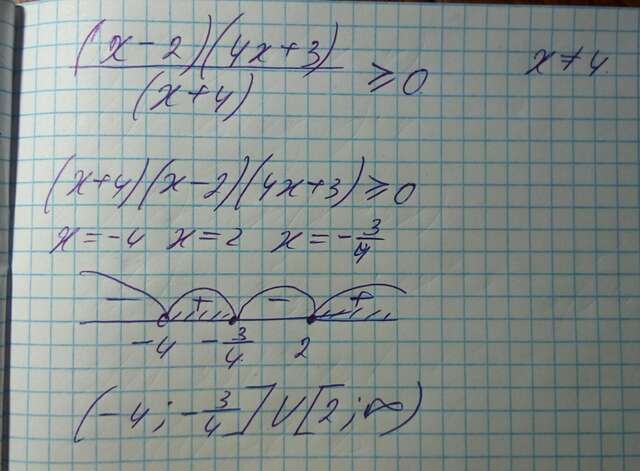 (x-2)(4x+3)/(x+4) ≥ 0 x≠4
(x+4)(x-2)(4x+3) ≥ 0
x=-4 x=2 x=-3/4
- + - +
-4 -3/4 2
(-4; -3/4]∪[2; ∞)